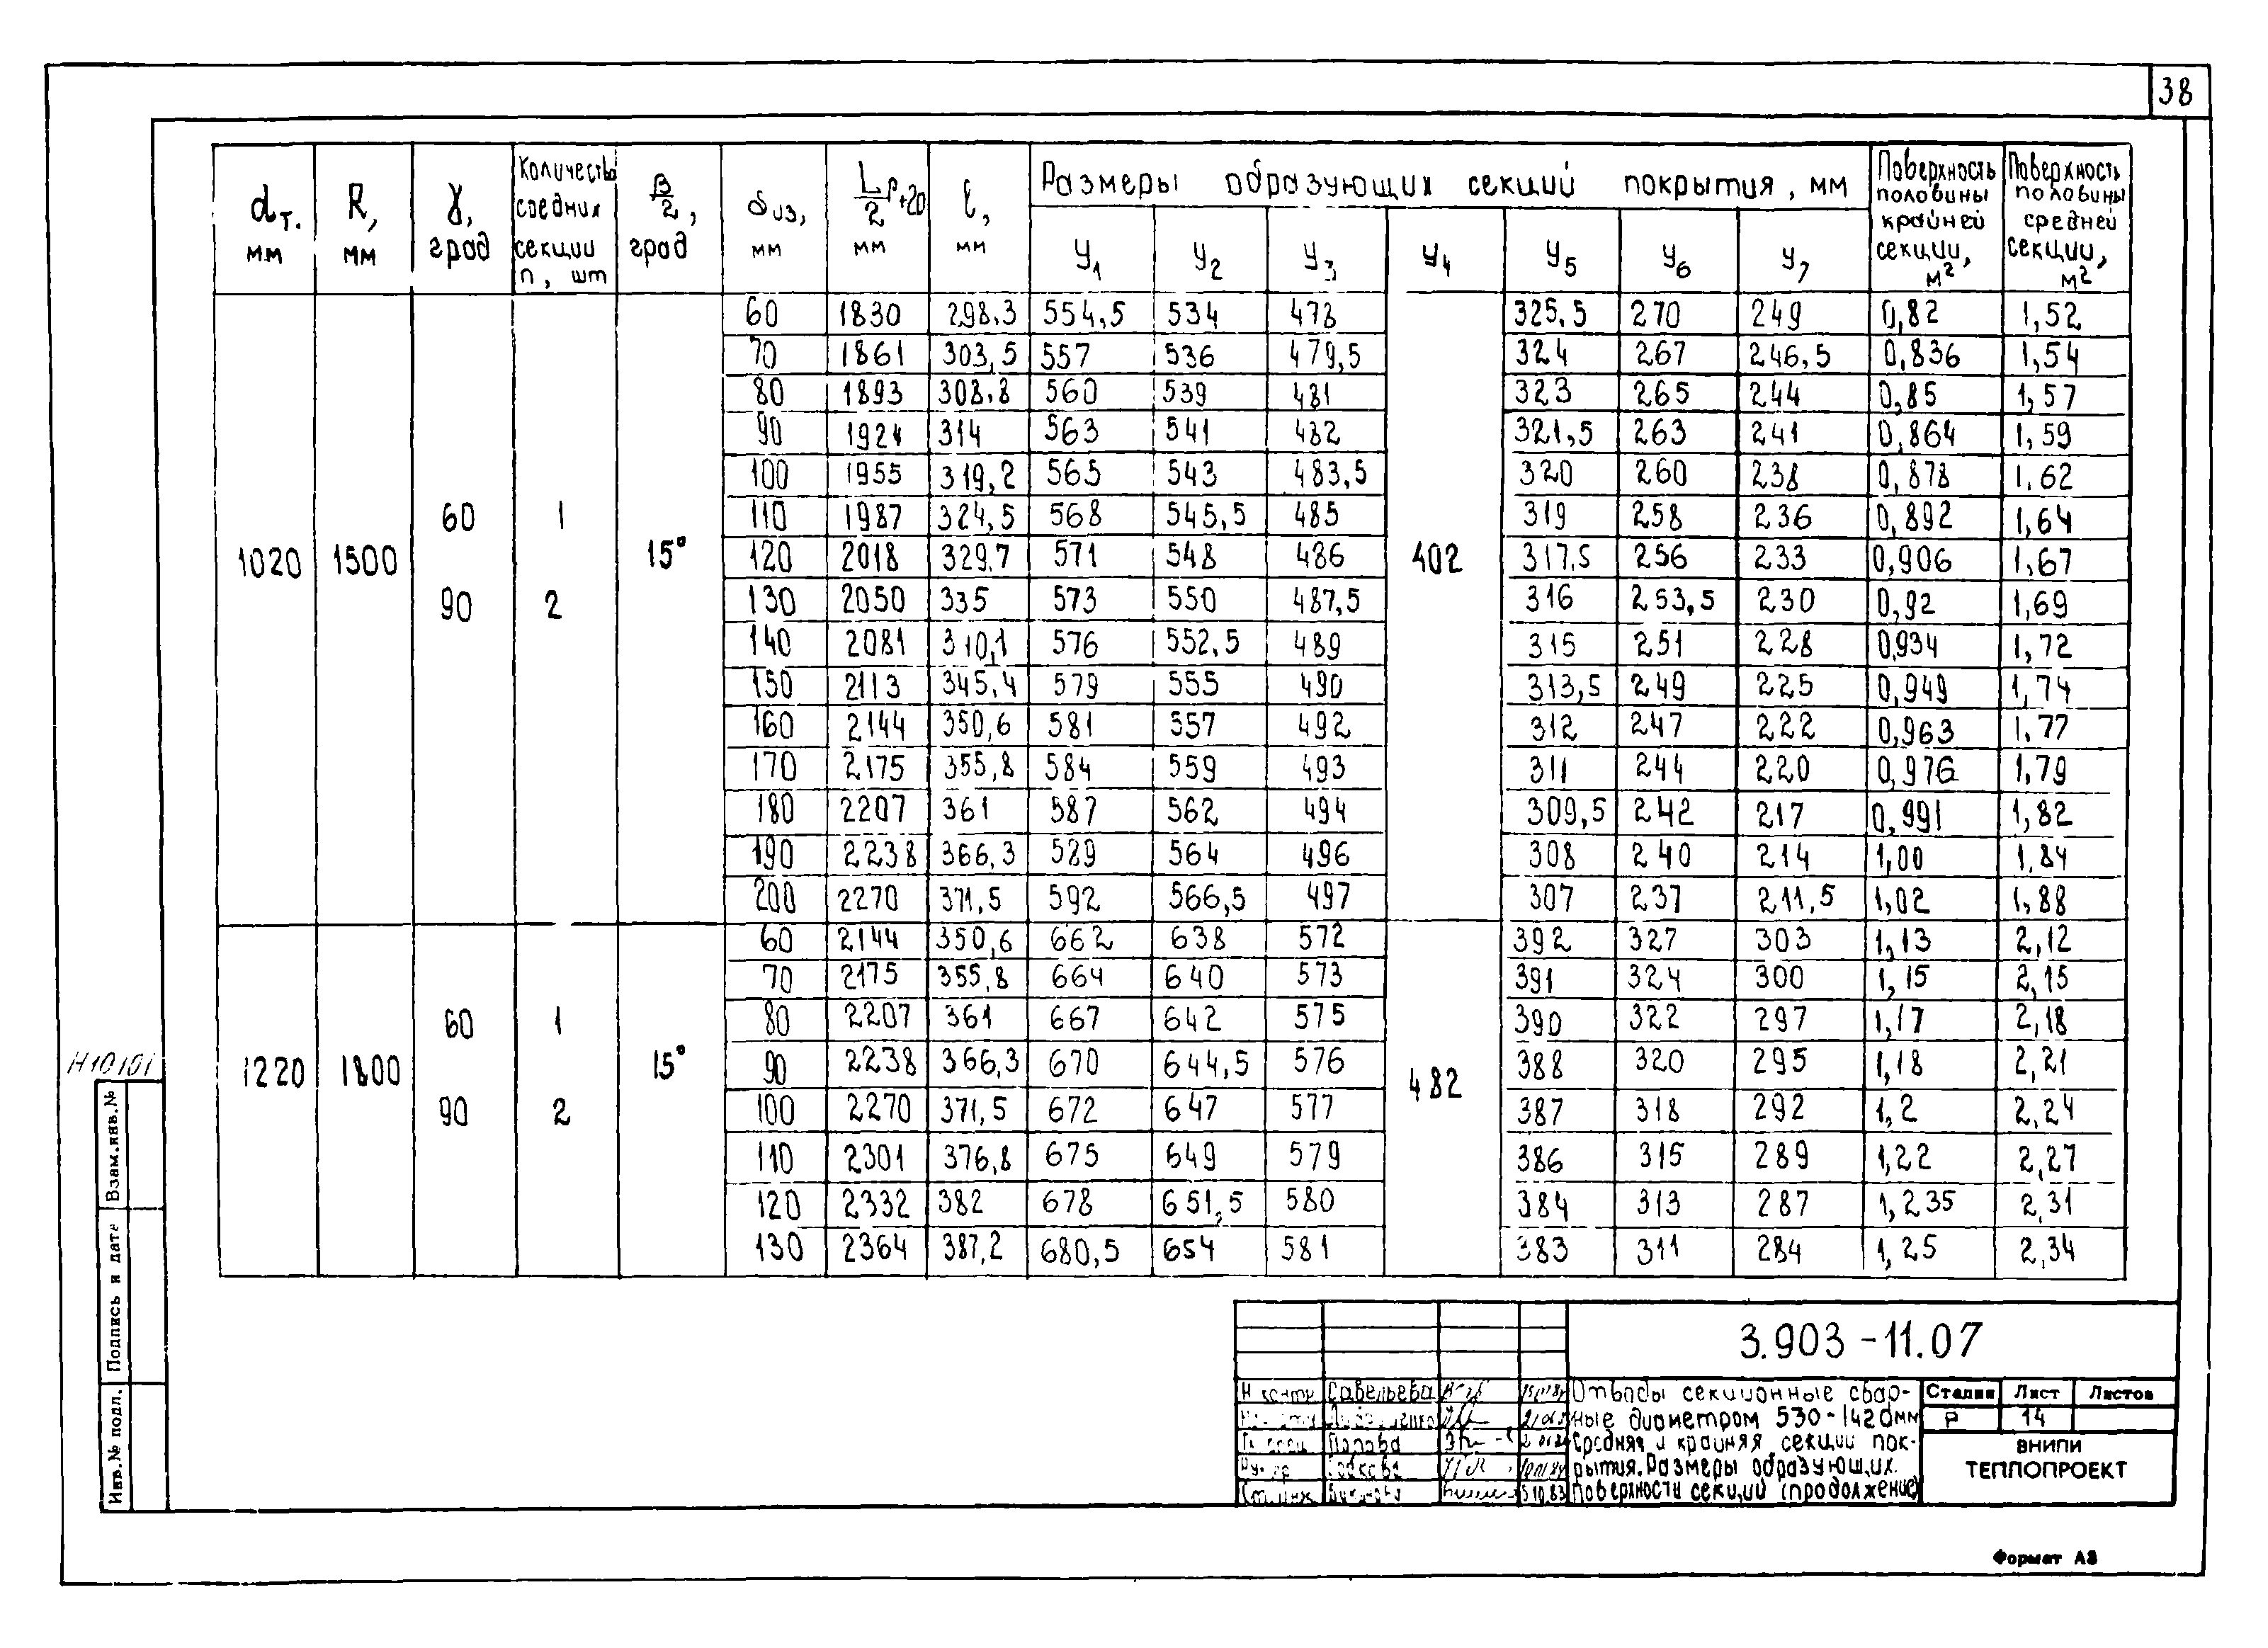 38
dт. мм | R, мм | γ, град | Количество средних секции n, шт | β/2, град | δиз, мм | Lр/2 +20 мм | ℓ, мм | Размеры образующих секций покрытия, мм | Поверхность половины крайней секции, м² | Поверхность половины средней секции, м²
y1 | y2 | y3 | y4 | y5 | y6 | y7
1020 | 1500 | 60 90 | 1 2 | 15° | 402
60 | 1830 | 298,3 | 554,5 | 534 | 478 | 325,5 | 270 | 249 | 0,82 | 1,52
70 | 1861 | 303,5 | 557 | 536 | 479,5 | 324 | 267 | 246,5 | 0,836 | 1,54
80 | 1893 | 308,8 | 560 | 539 | 481 | 323 | 265 | 244 | 0,85 | 1,57
90 | 1924 | 314 | 563 | 541 | 482 | 321,5 | 263 | 241 | 0,864 | 1,59
100 | 1955 | 319,2 | 565 | 543 | 483,5 | 320 | 260 | 238 | 0,878 | 1,62
110 | 1987 | 324,5 | 568 | 545,5 | 485 | 319 | 258 | 236 | 0,892 | 1,64
120 | 2018 | 329,7 | 571 | 548 | 486 | 317,5 | 256 | 233 | 0,906 | 1,67
130 | 2050 | 335 | 573 | 550 | 487,5 | 316 | 253,5 | 230 | 0,92 | 1,69
140 | 2081 | 340,1 | 576 | 552,5 | 489 | 315 | 251 | 228 | 0,934 | 1,72
150 | 2113 | 345,4 | 579 | 555 | 490 | 313,5 | 249 | 225 | 0,949 | 1,74
160 | 2144 | 350,6 | 581 | 557 | 492 | 312 | 247 | 222 | 0,963 | 1,77
170 | 2175 | 355,8 | 584 | 559 | 493 | 311 | 244 | 220 | 0,976 | 1,79
180 | 2207 | 361 | 587 | 562 | 494 | 309,5 | 242 | 217 | 0,991 | 1,82
190 | 2238 | 366,3 | 589 | 564 | 496 | 308 | 240 | 214 | 1,00 | 1,84
200 | 2270 | 371,5 | 592 | 566,5 | 497 | 307 | 237 | 211,5 | 1,02 | 1,88
1220 | 1800 | 60 90 | 1 2 | 15° | 482
60 | 2144 | 350,6 | 662 | 638 | 572 | 392 | 327 | 303 | 1,13 | 2,12
70 | 2175 | 355,8 | 664 | 640 | 573 | 391 | 324 | 300 | 1,15 | 2,15
80 | 2207 | 361 | 667 | 642 | 575 | 390 | 322 | 297 | 1,17 | 2,18
90 | 2238 | 366,3 | 670 | 644,5 | 576 | 388 | 320 | 295 | 1,18 | 2,21
100 | 2270 | 371,5 | 672 | 647 | 577 | 387 | 318 | 292 | 1,2 | 2,24
110 | 2301 | 376,8 | 675 | 649 | 579 | 386 | 315 | 289 | 1,22 | 2,27
120 | 2332 | 382 | 678 | 651,5 | 580 | 384 | 313 | 287 | 1,235 | 2,31
130 | 2364 | 387,2 | 680,5 | 654 | 581 | 383 | 311 | 284 | 1,25 | 2,34
Н10101
Взам.инв.№
Подпись и дата
Инв.№ подл.
3.903-11.07
Н контр Савельева
Попова
Отводы секционные свар-
ные диаметром 530-1420мм
Средняя и крайняя секции пок-
рытия. Размеры образующих.
Поверхности секций (продолжение)
Стадия | Лист | Листов
Р | 14
ВНИПИ
ТЕПЛОПРОЕКТ
Формат А3